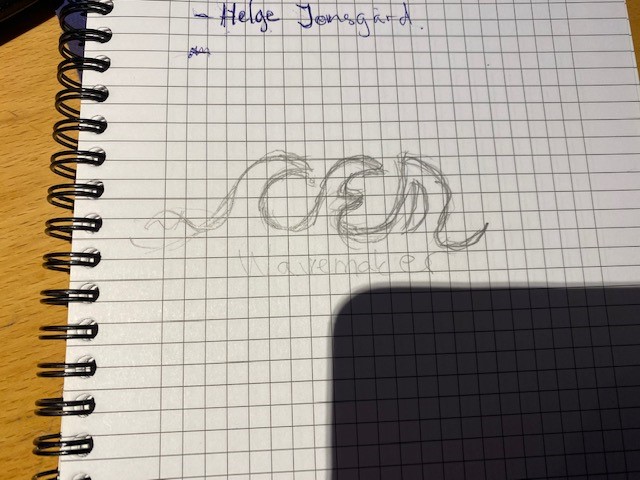 - Helge Jonsgård.
CEM
Wavemaker